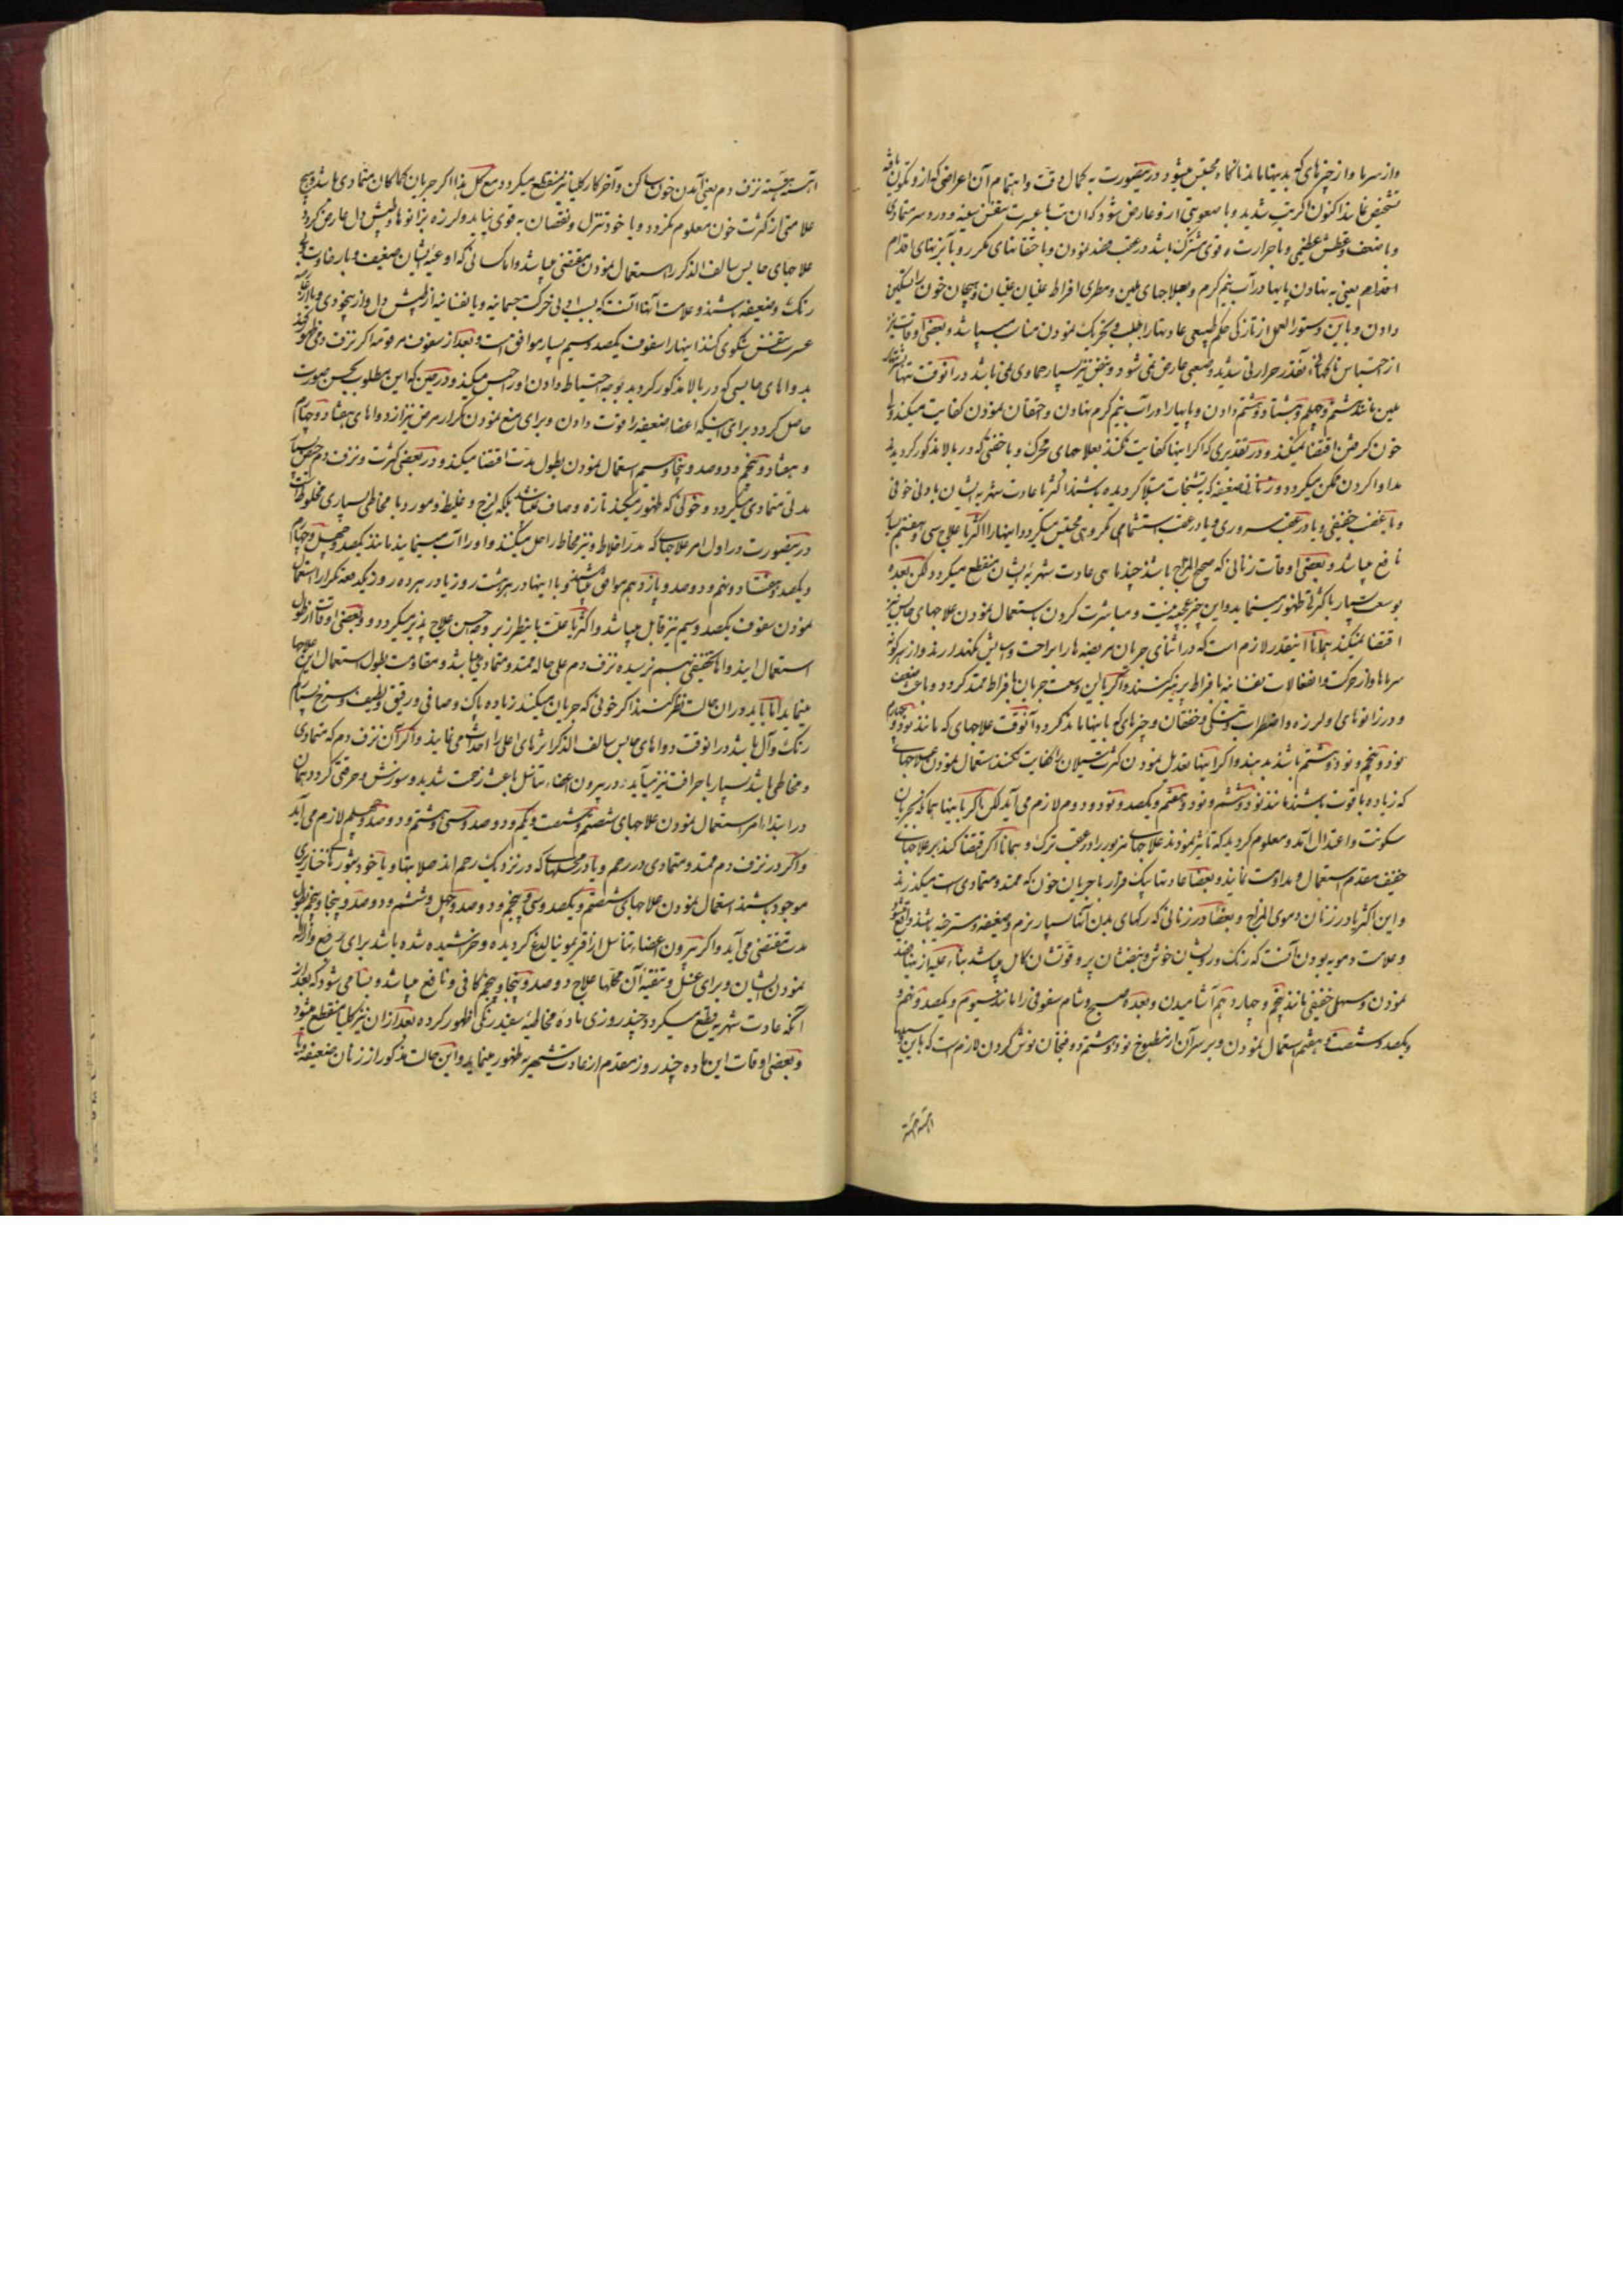 واز سرما و از چیزهای که بدینها ماند ناگاه محتبس میشود درینصورت به کمال دقت و اهتمام آن اعراضی که از و تکون یافته
تشخیص نماید اکنون اگر تب شدید و یا صعوبتی ازو عارض شود که ان تب با عسرت تنفس سینه و درد سر متمادی
و با ضعف و عطش عظیمی و با حرارت قوی مشترک باشد در عقب فصد نمودن و با حقنهای مکرر و با آبزنهای اقدام
استخدام یعنی به نهادن پایها در آب نیم کرم و بعلاجهای ملین و مطری افراط غلیان و هیجان خون را تسکین
دادن و باین دستور العمل از تازکی حکم طبیعی عادتها را جلب و تحریک نمودن مناسب میباشد و بعضی اوقات نیز
از احتباس ناکهانی آنقدر حرارتی شدید و طبیعی عارض نمی شود و نبض نیز بسیار حماوی نمی باشد درانوقت تنها
ملین مانند ششم و چهلم و هشتاد و هشتم دادن و پایها را در آب نیم کرم نهادن و احتقان نمودن کفایت میکند و
خون کرفتن اقتضا نمیکند و در تقدیری که اکر اینها کفایت نکنند بعلاجهای محرک و با حقنی که در بالا مذکور کردید
مداوا کردن ممکن میکردد و زنانی ضعیفه که به تشنجات مبتلا کردیده باشند اکثریا عادت شهریه ایشان با دنی خوفی
و یا غضب خفیفی و یا در عقب سروری و یا در عقب استشمامی مکروهی محتبس میکردد اینها را اکثریا علاج سی و هفتم بسیار
نافع میباشد و بعضی اوقات زنانی که صحیح المزاج باشند چند ماهی عادت شهریه ایشان منقطع میکردد لکن بعده
بوسعت بسیار با کثرتی ظهور مینماید و این چیز بچه نیست و مباشرت کردن باستعمال نمودن علاجهای حابس نیز
اقتضا نمیکند همانا اینقدر لازم است که در اثنای جریان مریضه ها را براحت و آسایش نکهدارند و از هرکونه
سرماها و از حرکت و انفعالات نفسانیه با فراط پرهیز کنند و اکر با این وسعت جریان بافراط ممتد کردد و باعث ضعف
و درزانوهای او لرزه و اضطراب تشنکی و خفقان و چیزهای که باینها ماند کردد آنوقت علاجهای که مانند نود و چهارم
نود و پنجم و نود و هشتم باشند بدهند و اکر اینها تعدیل نمودن کثرت سیلان را کفایت نکنند استعمال نمودن علاجهای
که زیاده باقوت باشند مانند نود و ششم و نود و هفتم و یکصد و نود و دوم لازم می آید لکن اکر باینها هماندم جریان
سکونت و اعتدال آمد و معلوم کردید که تاثیر نمودند علاجهای مزبور را در عقب ترک و همانا اکر اقتضا کند بر علاجهای
خفیف مقدم استعمال و مداومت نمایند و بعضا عادتها یک قرار با جریان خون که ممتد و متمادی است میکذرند
و این اکثریا در زنان دموی المزاج و بعضا در زنانی که رکهای بدن آنها بسیار نرم و ضعیفه و مسترخیه باشند واقع میشود
و علامت دمویه بودن آنست که رنک و روی ایشان خوش و نبضشان پر و قوتشان کامل میباشد بناء علیه از اینها فصد
نمودن و مسهل خفیفی مانند پنجم و چهاردهم آشامیدن و بعده صبح و شام سفوفی را مانند سیوم و یکصد و نهم و
و یکصد و شصت و هفتم استعمال نمودن و بر سر آن از مطبوخ نود و هشتم دو فنجان نوش کردن لازم است که باین سببها
آهسته آهسته
آهسته آهسته نزف دم یعنی آمدن خون ساکن و آخر کار کلیا نیز منقطع میکردد مع کل هذا اکر جریان کماکان متمادی باشد و هیچ
علامتی از کثرت خون معلوم نکردد و یا خود تنزل و نقصان به قوی نیاید و لرزه بزانوها و طپش دل عارض کردد
علاجهای حابس سالف الذکر را استعمال نمودن مقتضی میباشد و اما کسانی که اوعیه ایشان ضعیف و با رخاوت
رنک و ضعیفه باشند و علامت آنها آنست که بسبب ادنی حرکت جسمانیه و یا نفسانیه از طپش دل و از بیخودی و یا از
عسرت تنفس شکوی کنند اینها را سفوف یکصد و سیم بسیار موافق است و بعد از سفوف مرقومه اکر نزف دمی ظهور کند
بدواهای حابسی که در بالا مذکور کردید بوجه احتیاط دادن او را حبس میکند و در حین که این مطلوب بحسن صورت
حاصل کردد برای اینکه اعضا ضعیفه را قوت دادن و برای منع نمودن تکرار مرض نیز از دواهای هفتاد و چهارم
و هفتاد و پنجم و دوصد و پنجاه و سیم استعمال نمودن بطول مدت اقتضا میکند و در بعضی کثرت و نزف دم
مدتی متمادی میکردد و خونی که ظهور میکند تازه و صاف نمیباشد بلکه لزج و غلیظ و مور و با مخاطی بسیاری مخلوط است
درینصورت در اول امر علاجهای که مدر اخلاط و نیز مخاط را حل میکنند و او را آب مینمایند مانند یکصد و چهل و چهارم
و یکصد و هشتاد و نهم و دوصد و یازدهم موافق میباشند و با اینها در هر هشت روز یا در هر ده روز یکدفعه تکرار استعمال
نمودن سفوف یکصد و سیم نیز قابل میباشد و اکثریا علت باینطرز بر وجه حسن علاج پذیر میکردد و بعضی اوقات از طول
استعمال این دواها تخفیفی هم نرسیده نزف دم علی حاله ممتد و متمادی میباشد و مقاومت بطول استعمال این علاجها
مینماید اما باید در ان حالت نظر کنند اکر خونی که جریان میکند زیاده پاک و صافی و رقیق و لطیف و سرخ سیر
رنک و آل باشد درانوقت دواهای حابس سالف الذکر اثرهای اعلی را احداث می نمایند و اکر آن نزف دم که متمادی
و مخاطی باشد بسیار با حرافت نیز میآید و در بیرون اعضاء تناسل باعث زحمت شدید و سوزش و حرقتی کردد همان
در ابتداء امر استعمال نمودن علاجهای شصتم و شصت و یکم و دوصد و سی و هشتم و دوصد و چهلم لازم می آید
و اکر در نزف دم ممتد و متمادی در رحم و یا در محلهای که در نزدیک رحم اند صلابتها و یا خود بثورهای خنازیری
موجود باشند استعمال نمودن علاجهای شصتم و یکصد و سی و پنجم و دوصد و چهل و ششم و دوصد و پنجاه و پنجم بطول
مدت مقتضی می آید و اکر بیرون اعضاء تناسل از اثر مرض کردیده و خراشیده شده باشد برای رفع و ازاله
نمودن ایشان و برای غسل و تنقیه آن محلها علاج دوصد و پنجاه و پنجم کافی و نافع میباشد و بسا می شود که بعد از
آنکه عادت شهریه قطع میکردد چند روزی ماده مخاطیه سفید رنکی ظهور کرده بعد ازان نیز کلیا منقطع میشود
و بعضی اوقات این ماده چند روز مقدم از عادت شهریه ظهور مینماید و این حالت مذکور از زنان ضعیفه و یا